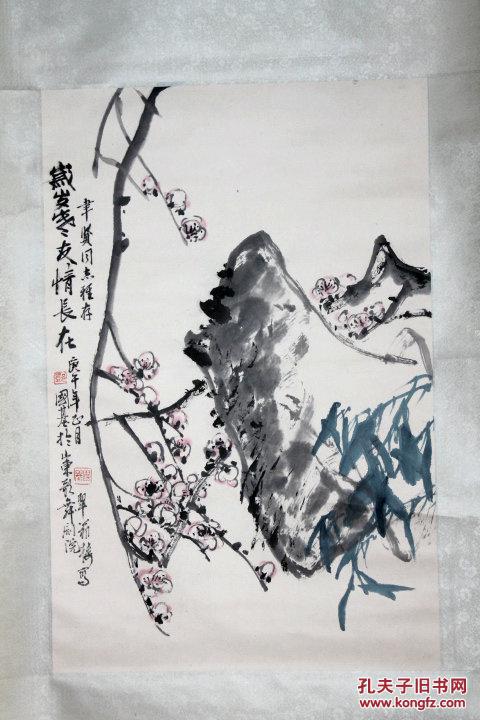 歲岁寒友情長在
聿賢同志雅存
庚午年正月
國基於山東歌舞劇院
孔夫子旧书网
www.kongfz.com